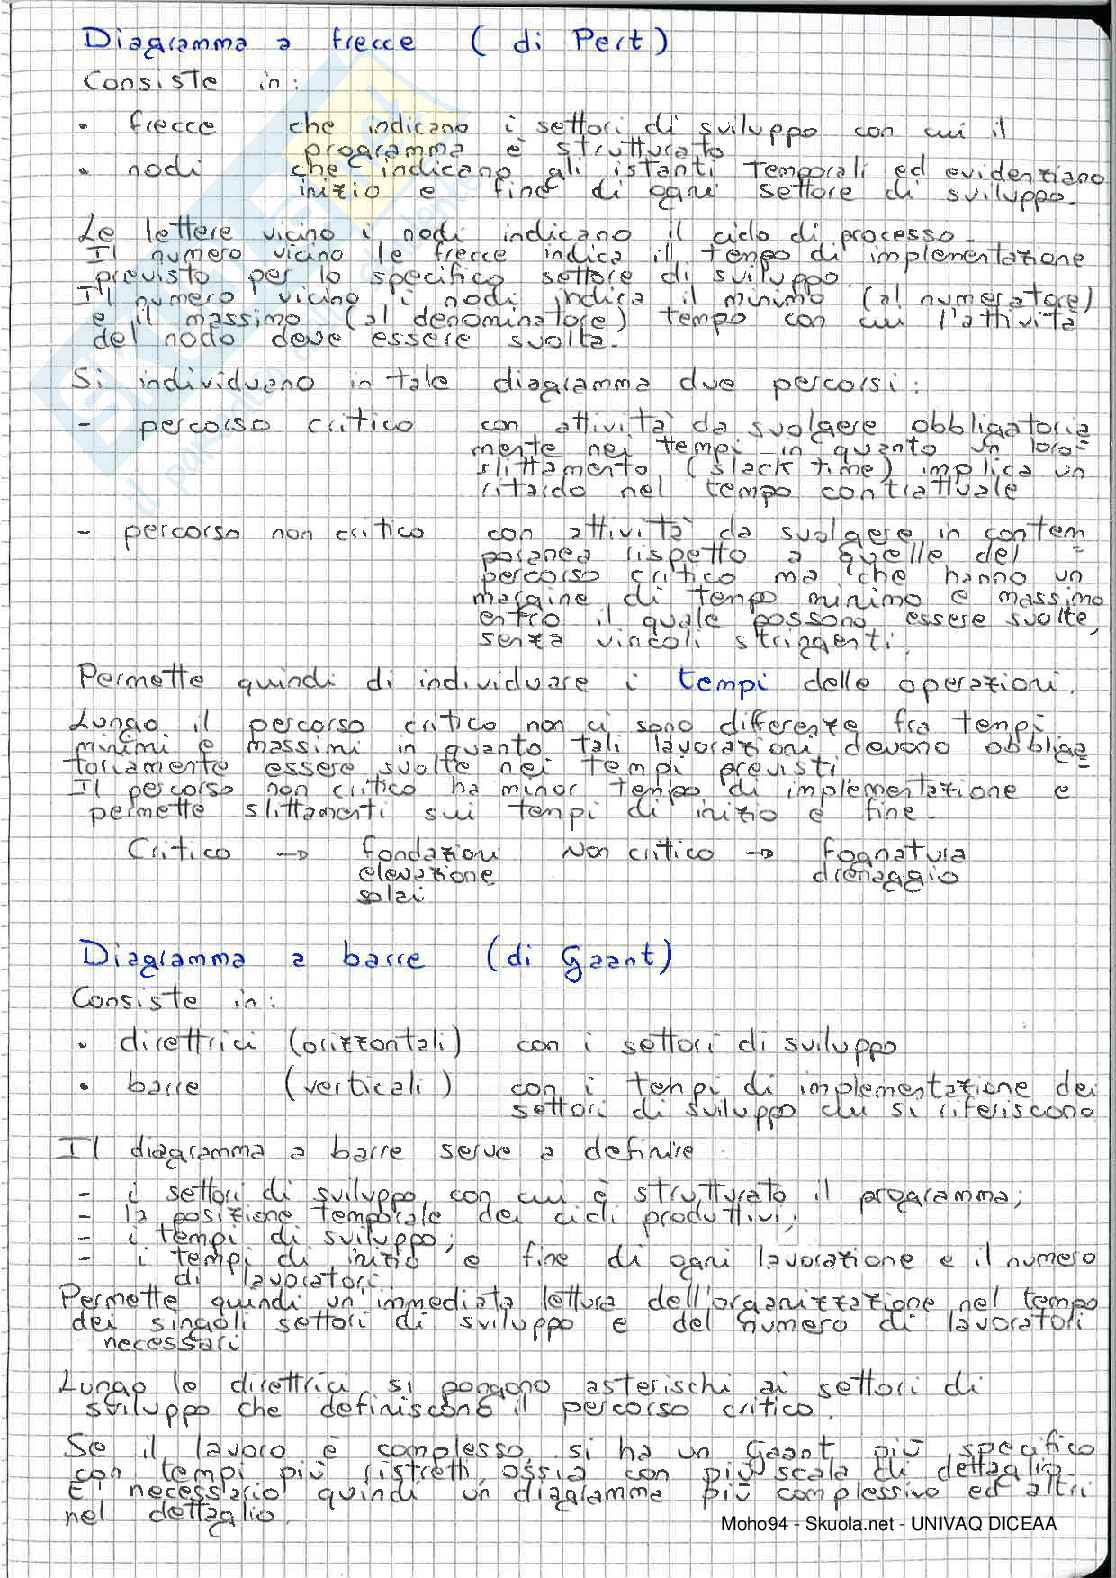 Diagramma a frecce (di Pert)
Consiste in:
• frecce che indicano i settori di sviluppo con cui il
programma è strutturato
• nodi che indicano gli istanti temporali ed evidenziano
inizio e fine di ogni settore di sviluppo.
Le lettere vicino i nodi indicano il ciclo di processo.
Il numero vicino le frecce indica il tempo di implementazione
previsto per lo specifico settore di sviluppo
Il numero vicino i nodi indica il minimo (al numeratore)
e il massimo (al denominatore) tempo con cui l'attività
del nodo deve essere svolta.
Si individuano in tale diagramma due percorsi:
- percorso critico con attività da svolgere obbligatoria
mente nei tempi in quanto un loro
slittamento (slack time) implica un
ritardo nel tempo contrattuale
- percorso non critico con attività da svolgere in contem
poranea rispetto a quelle del
percorso critico ma che hanno un
margine di tempo minimo e massimo
entro il quale possono essere svolte,
senza vincoli stringenti.
Permette quindi di individuare i tempi delle operazioni.
Lungo il percorso critico non ci sono differenze fra tempi
minimi e massimi in quanto tali lavorazioni devono obbliga
toriamente essere svolte nei tempi previsti
Il percorso non critico ha minor tempo di implementazione e
permette slittamenti sui tempi di inizio e fine.
Critico → fondazioni Non critico → fognatura
elevazione drenaggio
solai
Diagramma a barre (di Gaant)
Consiste in:
• direttrici (orizzontali) con i settori di sviluppo
• barre (verticali) con i tempi di implementazione dei
settori di sviluppo cui si riferiscono
Il diagramma a barre serve a definire
- i settori di sviluppo con cui è strutturato il progamma;
- la posizione temporale dei cicli produttivi;
- i tempi di sviluppo;
- i tempi di inizio e fine di ogni lavorazione e il numero
di lavoratori
Permette quindi un'immediata lettura dell'organizzazione nel tempo
dei singoli settori di sviluppo e del numero di lavoratori
necessari
Lungo le direttrici si pongono asterischi ai settori di
sviluppo che definiscono il percorso critico.
Se il lavoro è complesso, si ha un Gaant più specifico
con tempi più ristretti, ossia con più scala di dettaglio
E' necessario quindi un diagramma più complessivo ed altri
nel dettaglio.
Moho94 - Skuola.net - UNIVAQ DICEAA